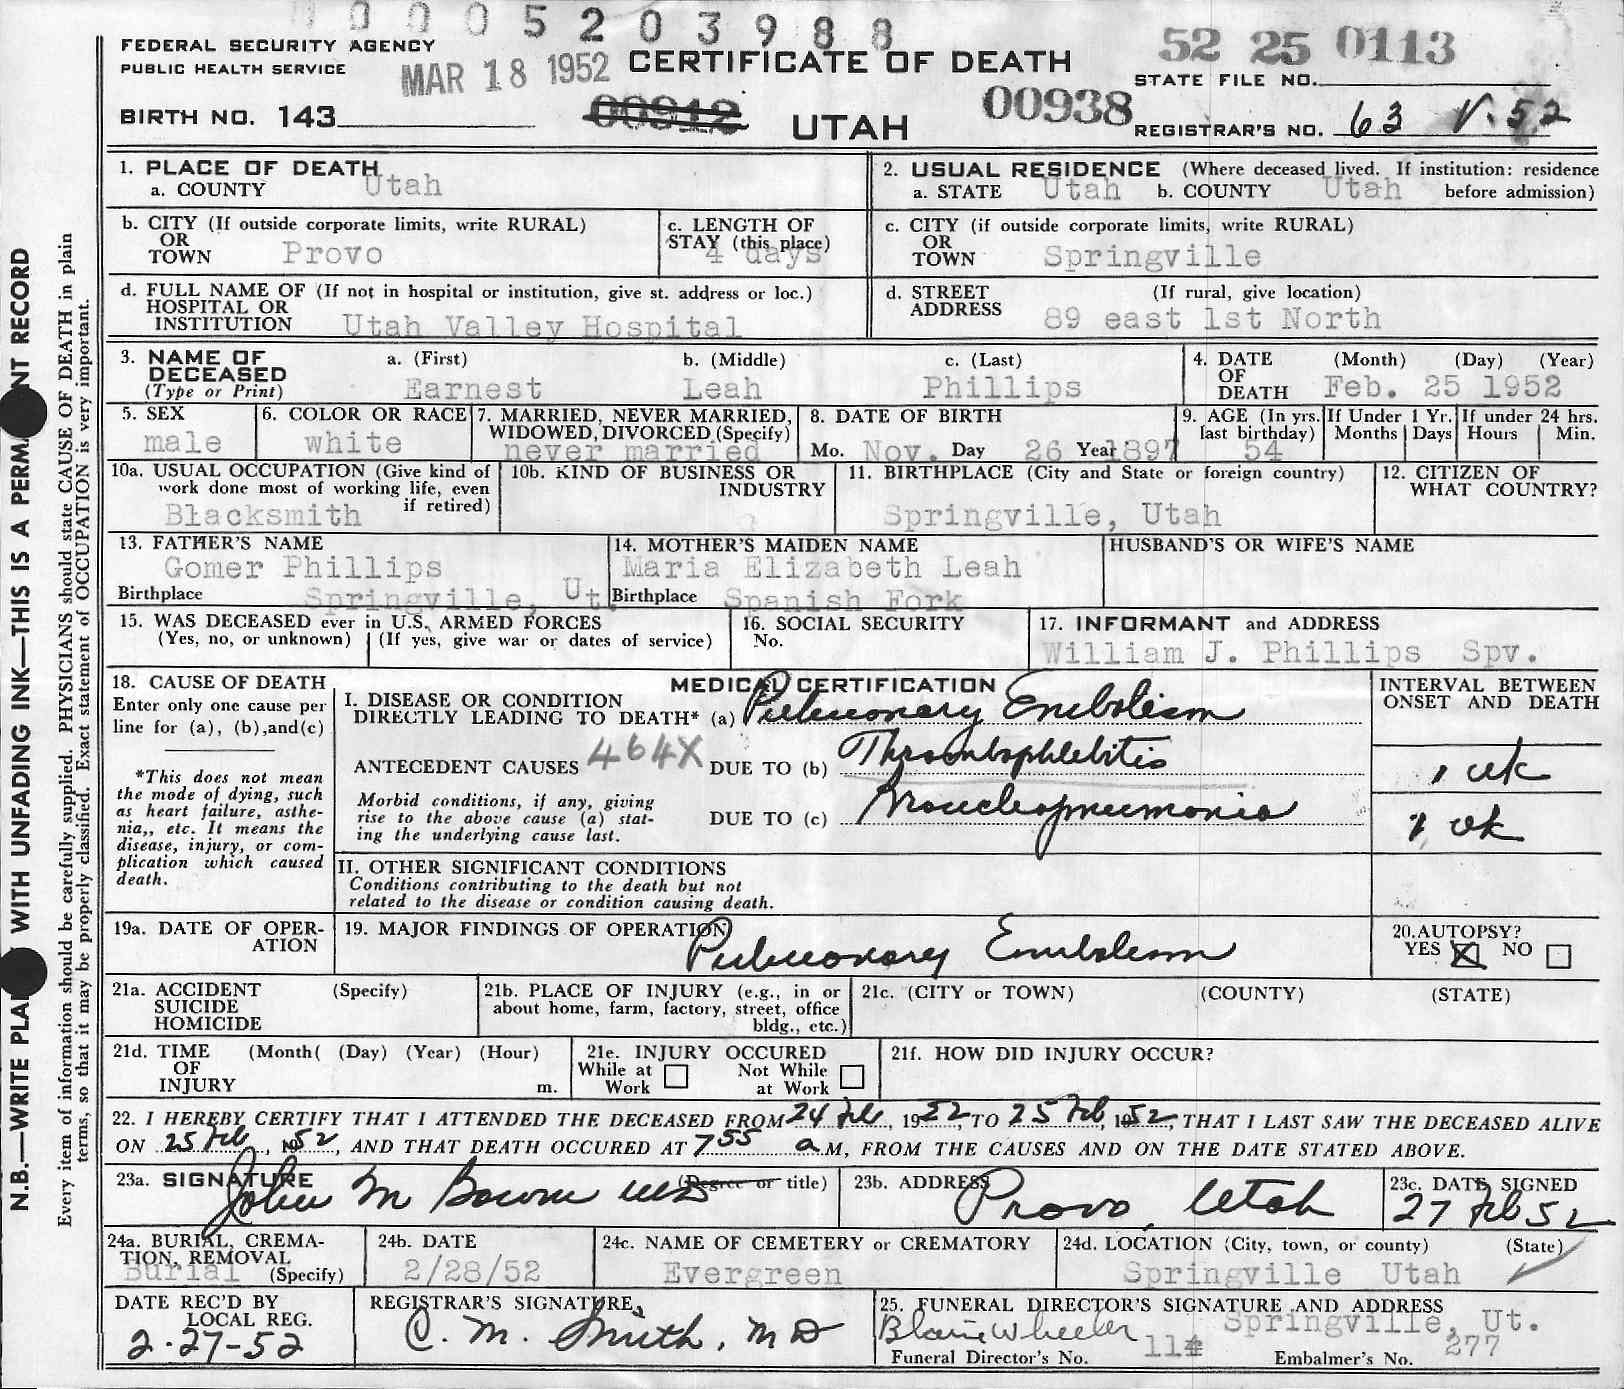 0 0 0 5 2 0 3 9 8 8
FEDERAL SECURITY AGENCY
PUBLIC HEALTH SERVICE
MAR 18 1952
CERTIFICATE OF DEATH
52 25 0113
STATE FILE NO.
BIRTH NO. 143
00912
UTAH
00938
REGISTRAR'S NO. 63 V. 52
1. PLACE OF DEATH
a. COUNTY Utah
2. USUAL RESIDENCE (Where deceased lived. If institution: residence
a. STATE Utah b. COUNTY Utah before admission)
b. CITY (If outside corporate limits, write RURAL)
OR
TOWN Provo
c. LENGTH OF
STAY (this place)
4 days
c. CITY (if outside corporate limits, write RURAL)
OR
TOWN Springville
d. FULL NAME OF (If not in hospital or institution, give st. address or loc.)
HOSPITAL OR
INSTITUTION Utah Valley Hospital
d. STREET (If rural, give location)
ADDRESS 89 east 1st North
3. NAME OF a. (First) b. (Middle) c. (Last)
DECEASED
(Type or Print) Earnest Leah Phillips
4. DATE (Month) (Day) (Year)
OF
DEATH Feb. 25 1952
5. SEX
male
6. COLOR OR RACE
white
7. MARRIED, NEVER MARRIED,
WIDOWED, DIVORCED (Specify)
never married
8. DATE OF BIRTH
Mo. Nov. Day 26 Year 1897
9. AGE (In yrs.
last birthday)
54
If Under 1 Yr.
Months Days
If under 24 hrs.
Hours Min.
10a. USUAL OCCUPATION (Give kind of
work done most of working life, even
if retired)
Blacksmith
10b. KIND OF BUSINESS OR
INDUSTRY
11. BIRTHPLACE (City and State or foreign country)
Springville, Utah
12. CITIZEN OF
WHAT COUNTRY?
13. FATHER'S NAME
Gomer Phillips
Birthplace Springville, Ut.
14. MOTHER'S MAIDEN NAME
Maria Elizabeth Leah
Birthplace Spanish Fork
HUSBAND'S OR WIFE'S NAME
15. WAS DECEASED ever in U.S. ARMED FORCES
(Yes, no, or unknown) (If yes, give war or dates of service)
16. SOCIAL SECURITY
No.
17. INFORMANT and ADDRESS
William J. Phillips Spv.
18. CAUSE OF DEATH
Enter only one cause per
line for (a), (b),and(c)
*This does not mean
the mode of dying, such
as heart failure, asthe-
nia,, etc. It means the
disease, injury, or com-
plication which caused
death.
MEDICAL CERTIFICATION
I. DISEASE OR CONDITION
DIRECTLY LEADING TO DEATH* (a) Pulmonary Embolism
ANTECEDENT CAUSES 464X DUE TO (b) Thrombophlebitis
Morbid conditions, if any, giving
rise to the above cause (a) stat-
ing the underlying cause last.
DUE TO (c) Bronchopneumonia
INTERVAL BETWEEN
ONSET AND DEATH
1 wk
1 wk
II. OTHER SIGNIFICANT CONDITIONS
Conditions contributing to the death but not
related to the disease or condition causing death.
19a. DATE OF OPER-
ATION
19. MAJOR FINDINGS OF OPERATION
Pulmonary Embolism
20.AUTOPSY?
YES X NO
21a. ACCIDENT (Specify)
SUICIDE
HOMICIDE
21b. PLACE OF INJURY (e.g., in or
about home, farm, factory, street, office
bldg., etc.)
21c. (CITY or TOWN) (COUNTY) (STATE)
21d. TIME (Month( (Day) (Year) (Hour)
OF
INJURY m.
21e. INJURY OCCURED
While at Not While
Work at Work
21f. HOW DID INJURY OCCUR?
22. I HEREBY CERTIFY THAT I ATTENDED THE DECEASED FROM 24 Feb, 1952, TO 25 Feb, 1952, THAT I LAST SAW THE DECEASED ALIVE
ON 25 Feb, 1952, AND THAT DEATH OCCURED AT 7 55 a M, FROM THE CAUSES AND ON THE DATE STATED ABOVE.
23a. SIGNATURE (Degree or title)
John M Bowen MD
23b. ADDRESS
Provo, Utah
23c. DATE SIGNED
27 Feb 52
24a. BURIAL, CREMA-
TION, REMOVAL
Burial (Specify)
24b. DATE
2/28/52
24c. NAME OF CEMETERY or CREMATORY
Evergreen
24d. LOCATION (City, town, or county) (State)
Springville Utah
DATE REC'D BY
LOCAL REG.
2-27-52
REGISTRAR'S SIGNATURE
C. M. Smith, MD
25. FUNERAL DIRECTOR'S SIGNATURE AND ADDRESS
Blaine Wheeler Springville, Ut.
Funeral Director's No. 114 Embalmer's No. 277
N.B.—WRITE PLAI WITH UNFADING INK—THIS IS A PERMA NT RECORD
Every item of information should be carefully supplied. PHYSICIANS should state CAUSE OF DEATH in plain
terms, so that it may be properly classified. Exact statement of OCCUPATION is very important.